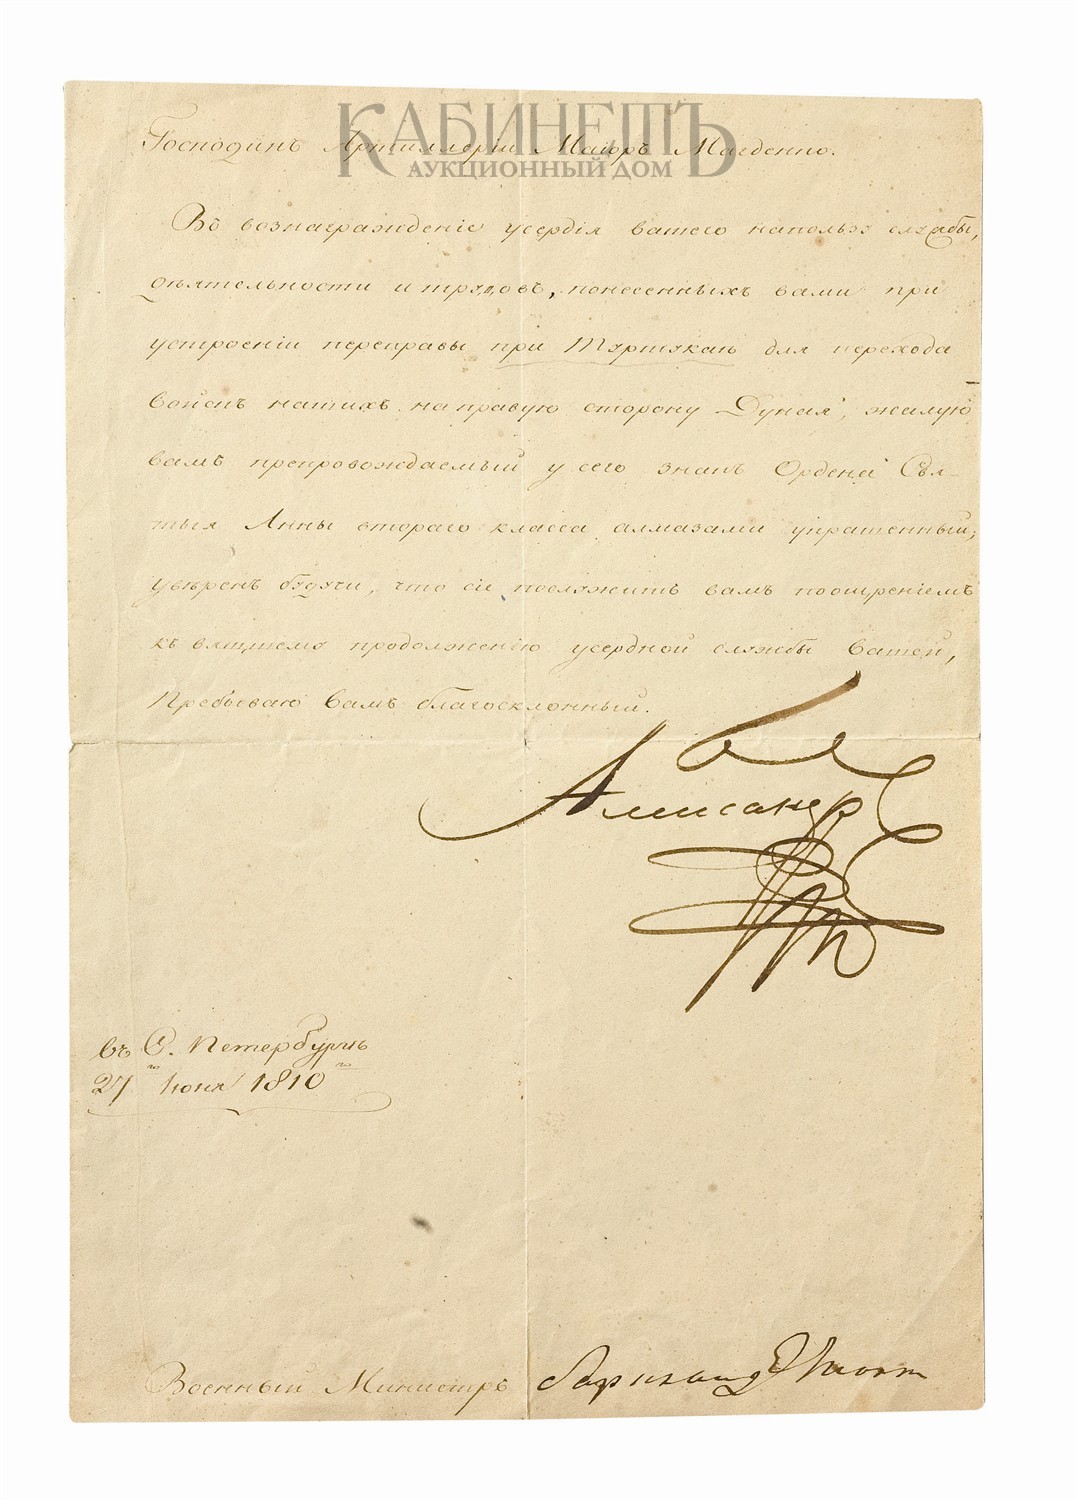 КАБИНЕТЪ
АУКЦИОННЫЙ ДОМ
Господинъ Артиллеріи Маіоръ Магденко.
Въ вознагражденіе усердія вашего напользу службы,
дѣятельности и трудовъ, понесенныхъ вами при
устроеніи переправы при Туртукаѣ для перехода
войскъ нашихъ на правую сторону Дуная, жалую
вамъ препровождаемый у сего знакъ Ордена Свя-
тыя Анны втораго класса алмазами украшенный;
увѣренъ будучи, что сіе послужитъ вамъ поощреніемъ
къ вящшему продолженію усердной службы вашей,
Пребываю вамъ благосклонный.
Александръ
въ С. Петербургѣ
27го Іюня 1810го
Военный Министръ Барклай Де Толли